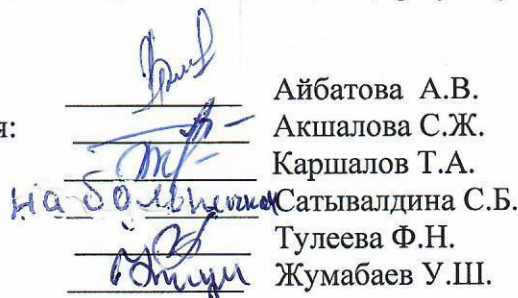 Айбатова А.В.
я: Акшалова С.Ж.
Каршалов Т.А.
на больничном Сатывалдина С.Б.
Тулеева Ф.Н.
Жумабаев У.Ш.